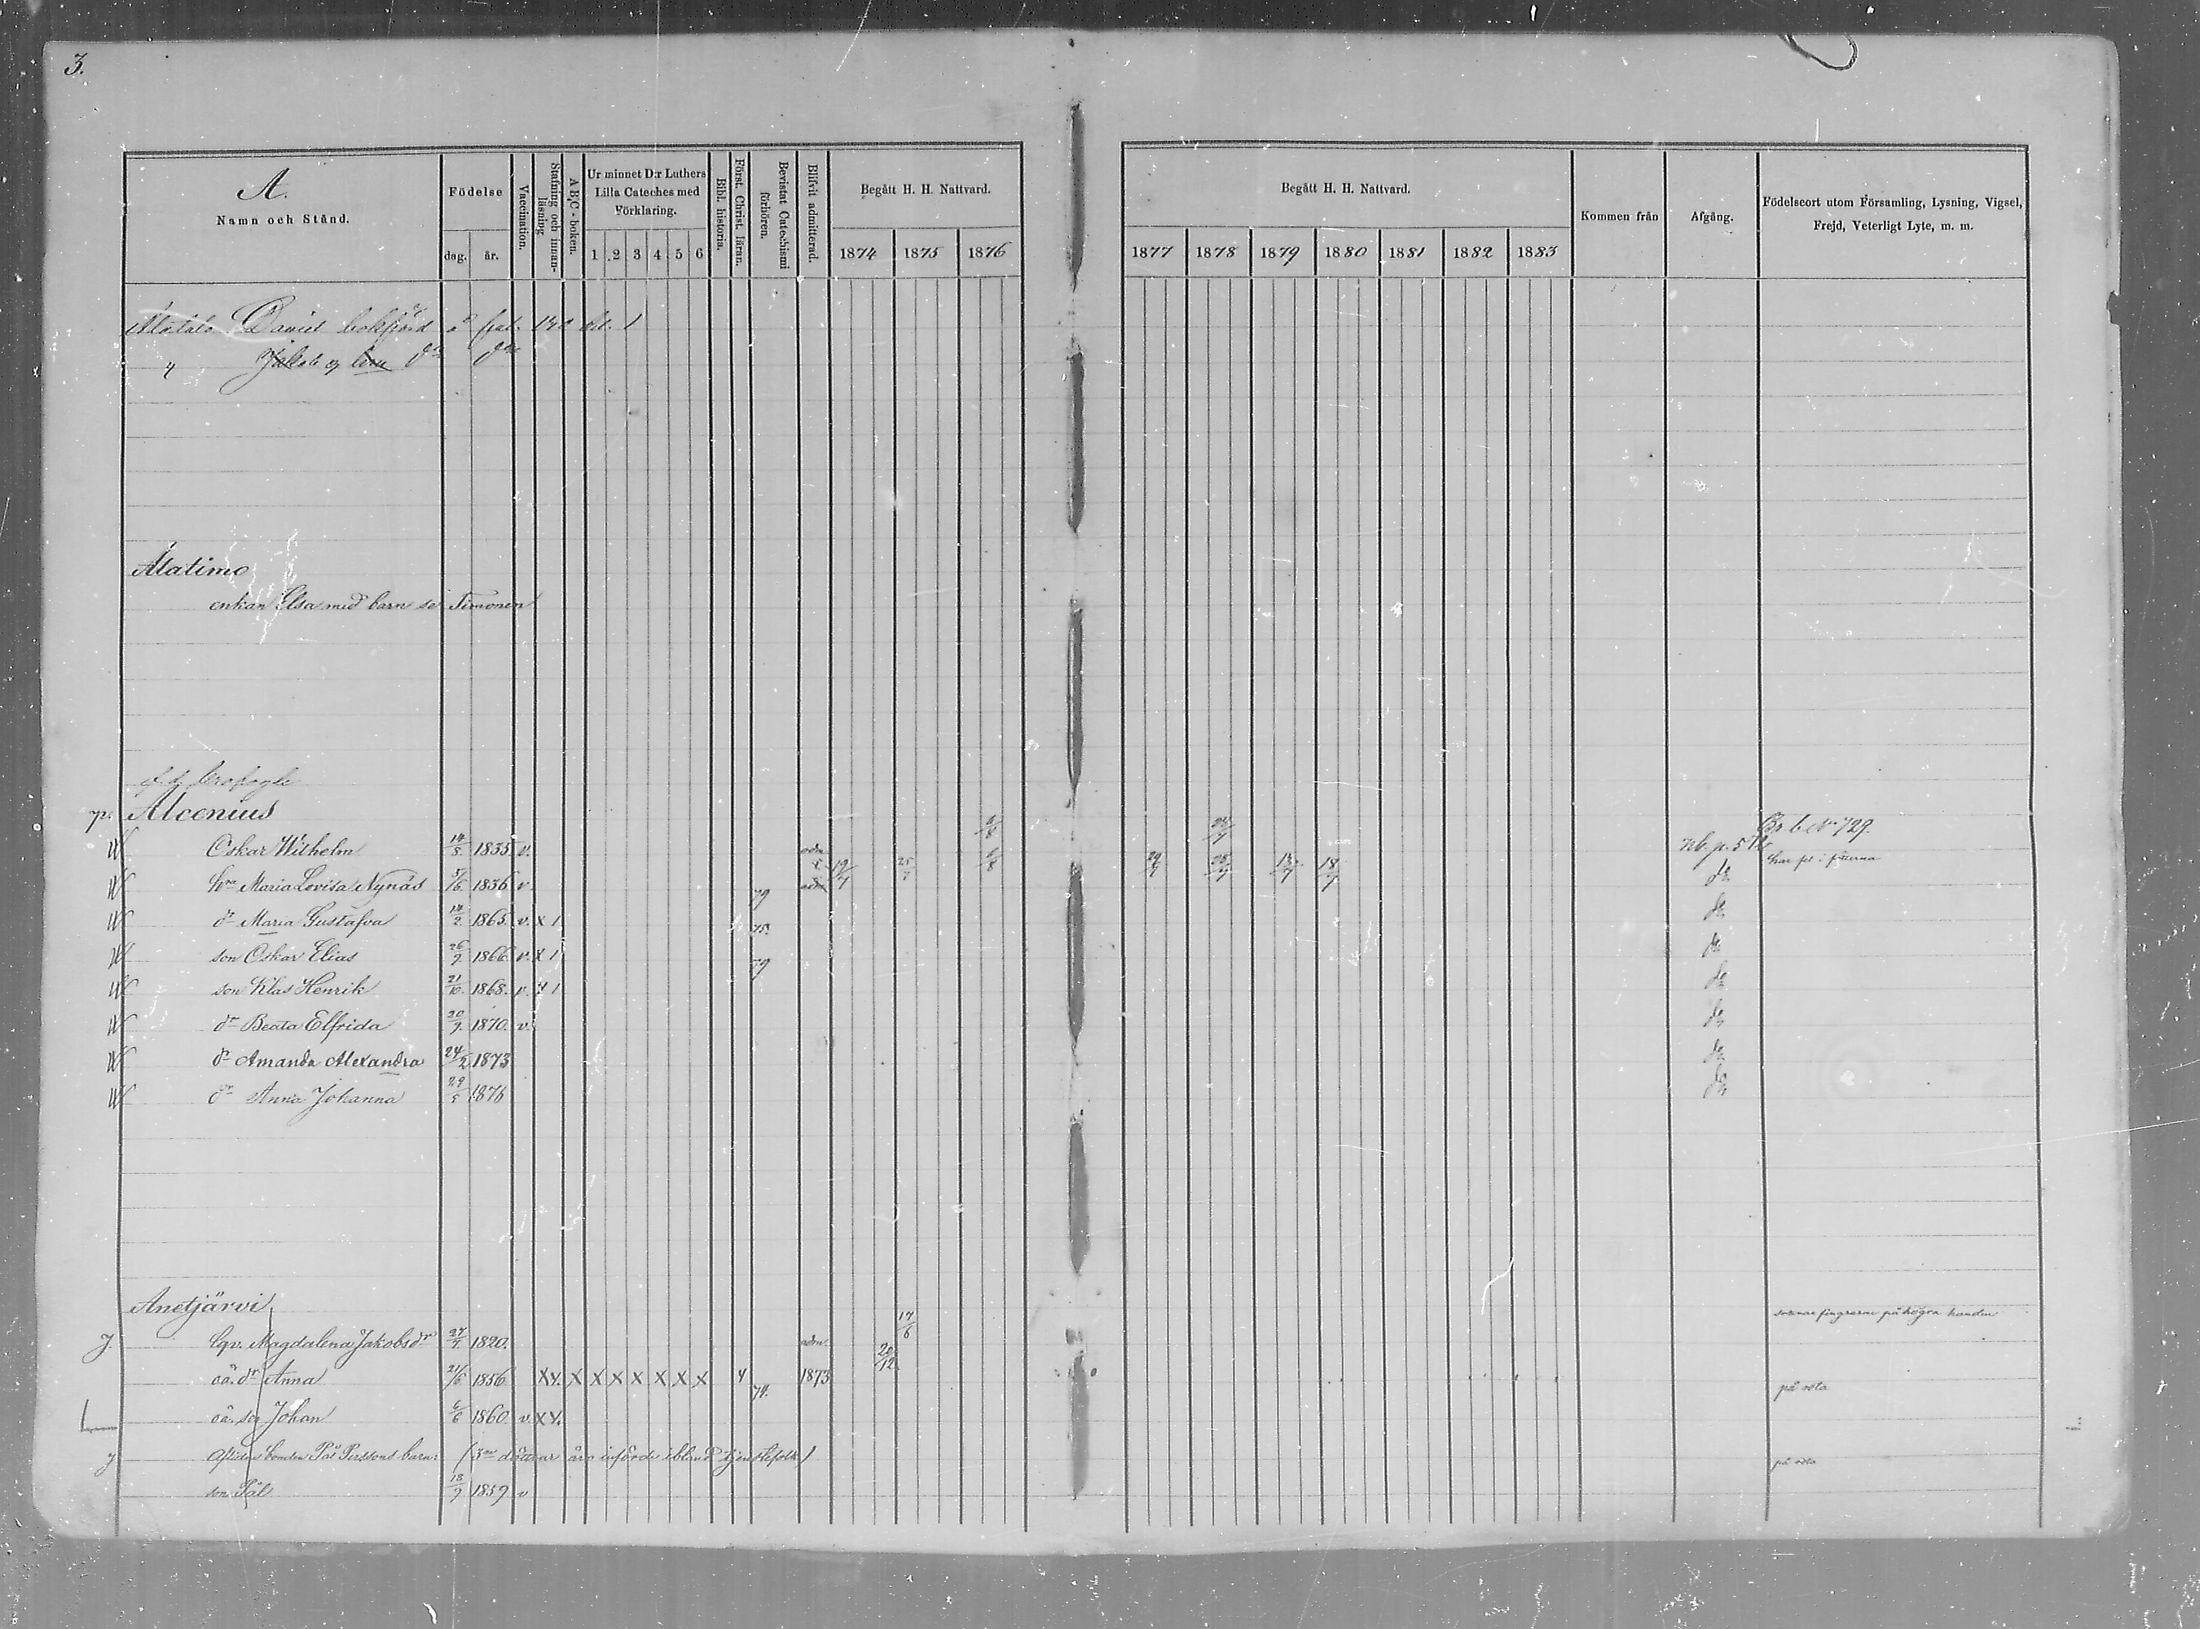 3.
A.
Namn och Stånd.
Födelse
dag. år.
Vaccination.
Stafning och innan-läsning.
ABC-boken.
Ur minnet D:r Luthers Lilla Cateches med Förklaring.
1 2 3 4 5 6
Bibl. historia.
Först. Christ. läran.
Bevistat Catechismi förhören.
Blifvit admitterad.
Begått H. H. Nattvard.
1874 1875 1876
Begått H. H. Nattvard.
1877 1878 1879 1880 1881 1882 1883
Kommen från
Afgång.
Födelseort utom Församling, Lysning, Vigsel, Frejd, Veterligt Lyte, m. m.
Daniel
Jakob
Alatimo
enkan Elsa med barn se Timonen
p. Alcenius
Oskar Wilhelm 14/5 1835 v. nb. p. 5
hu Maria Lovisa Nynäs 5/6 1836 v. 79 19/7 25/7 6/8 29/7 28/7 13/7 18/7 do
dr Maria Gustafva 14/2 1865. v. x 1 75. do
son Oskar Elias 26/9 1866 v. x 1 79 do
son Klas Henrik 21/10 1868. v. x 1 do
dr Beata Elfrida 20/9 1870. v. do
dr Amanda Alexandra 24/2 1873 do
dr Anna Johanna 29/5 1876 do
Anetjärvi
Magdalena Jakobsdr 27/7 1820. adm. 17/6 fingrarne på högra handen
oä. dr Anna 21/6 1856 x x x x x x x x 4 74. 1873 20/12
oä. son Johan 6/6 1860 v. x på rota
Aflidne bonden Pål Perssons barn: (3ne döttrar äro införde ibland tjenstefolk)
son Pål 18/9 1859 v på rota